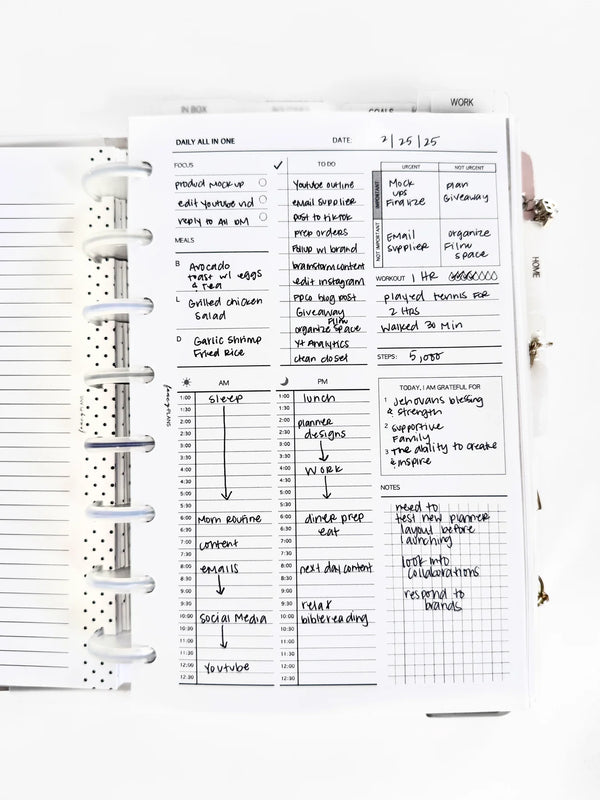 IN BOX
GOALS
WORK
HOME
DAILY ALL IN ONE
DATE: 2|25|25
FOCUS
product mockup
edit youtube vid
reply to all DM
MEALS
B Avocado
toast w/ eggs
& tea
L Grilled chicken
Salad
D Garlic shrimp
Fried Rice
✓ TO DO
Youtube outline
email supplier
post to tiktok
prep orders
Follup w/ brand
brainstorm content
edit instagram
PPCo blog post
Giveaway
Film
organize space
Yt Analytics
clean closet
URGENT NOT URGENT
IMPORTANT
Mock
ups
Finalize
plan
Giveaway
NOT IMPORTANT
Email
supplier
organize
Film
space
WORKOUT 1 HR
played tennis For
2 Hrs
Walked 30 Min
STEPS: 5,000
TODAY, I AM GRATEFUL FOR
1 Jehovahs blessing
& strength
2 supportive
Family
3 The ability to create
& inspire
AM
1:00 sleep
1:30
2:00
2:30
3:00
3:30
4:00
4:30
5:00
5:30
6:00 Morn Routine
6:30
7:00 content
7:30
8:00 emails
8:30
9:00
9:30
10:00 Social Media
10:30
11:00
11:30
12:00 Youtube
12:30
PM
1:00 lunch
1:30
2:00 planner
2:30 designs
3:00
3:30
4:00 WORK
4:30
5:00
5:30
6:00 diner prep
6:30 eat
7:00
7:30
8:00 next day content
8:30
9:00
9:30 relax
10:00 bible reading
10:30
11:00
11:30
12:00
12:30
NOTES
need to
test new planner
layout before
launching
look into
collaborations
respond to
brands